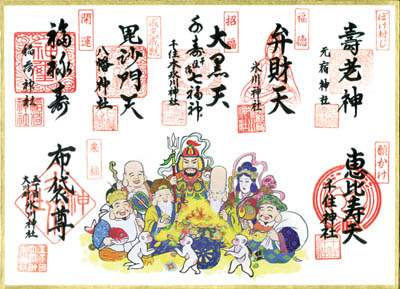 ぼけ封じ
壽老神
元宿神社
福徳
弁財天
氷川神社
招福
大黒天
千寿七福神
千住本氷川神社
毘沙門天
八幡神社
開運
福禄寿
稲荷神社
願かけ
恵比寿天
千住神社
来福
布袋尊
五丁目
氷川神社